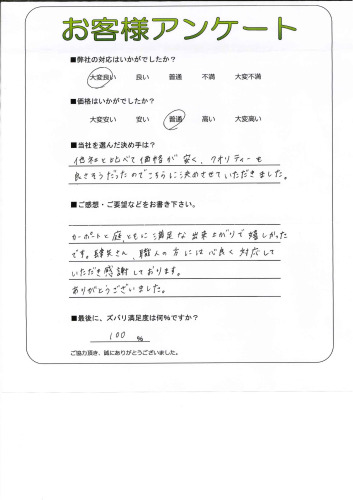 お客様アンケート
■弊社の対応はいかがでしたか?
大変良い 良い 普通 不満 大変不満
■価格はいかがでしたか?
大変安い 安い 普通 高い 大変高い
■当社を選んだ決め手は?
他社と比べて価格が安く、クオリティーも
良さそうだったのでこちらに決めさせていただきました。
■ご感想・ご要望などをお書き下さい。
カーポートと庭、ともに満足な出来上がりで嬉しかった
です。 職人の方には心良く対応して
いただき感謝しております。
ありがとうございました。
■最後に、ズバリ満足度は何%ですか?
100 %
ご協力頂き、誠にありがとうございました。